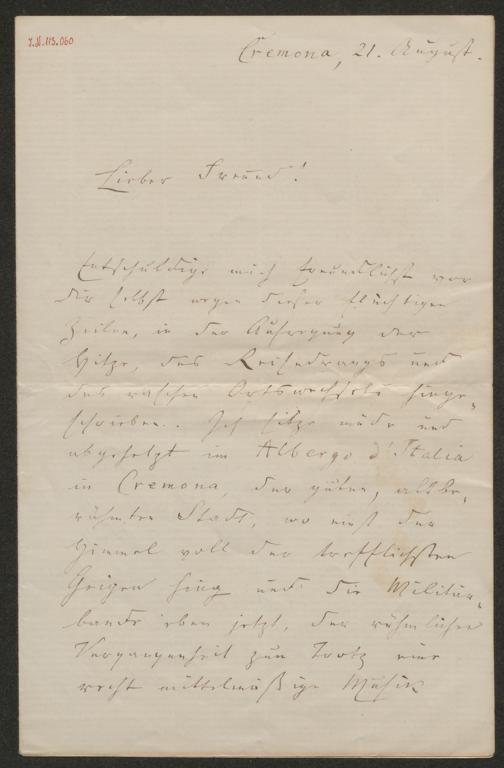 I.N. 115.060
Cremona, 21. August.
Lieber Freund!
Entschuldige mich freundlichst vor
dir selbst wegen dieser flüchtigen
Zeilen, in der Aufregung der
Hitze, des Reisedrangs und
des raschen Ortswechsels hinge-
schrieben. Ich sitze müde und
abgehetzt im Albergo d'Italia
in Cremona, der guten, altbe-
rühmten Stadt, wo einst der
Himmel voll der trefflichsten
Geigen hing und die Militär-
bande eben jetzt, der rühmlichen
Vergangenheit zum Trotz eine
recht mittelmäßige Musik